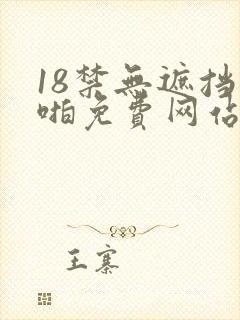 18禁無遮挡
啪免費网站
王寨